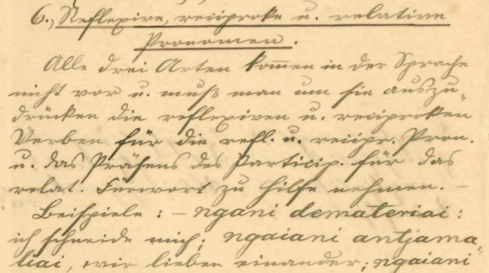 6.) Reflexive, reciproke u. relative
Pronomen.
Alle drei Arten kom̄en in der Sprache
nicht vor u. muß man um sie auszu„
drücken die reflexiven u. reciproken
Verben für die refl. u. recipr. Pron.
u. das Präsens des Particip. für das
relat. Fürwort zu Hilfe nehmen. –
Beispiele: – ngani demateriai:
ich schneide mich; ngaiani antjama„
liai, wir lieben einander; ngaiani